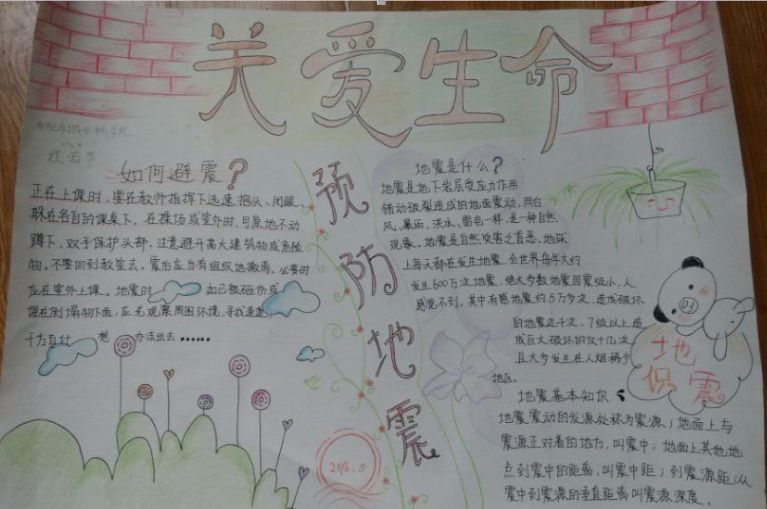 关爱生命
如何避震？
正在上课时，要在教师指挥下迅速抱头、闭眼、
躲在各自的课桌下。在操场或室外时，可原地不动
蹲下，双手保护头部，注意避开高大建筑物或危险
物。不要回到教室去。震后应当有组织地撤离。必要时
应在室外上课。地震时 如已被砸伤或
埋在倒塌物下面，应先观察周围环境，寻找通道
千方百计 想 办法出去……
预防地震
2016.5
地震是什么？
地震是地下岩层受应力作用
错动破裂造成的地面震动，同台
风、暴雨、洪水、雷电一样，是一种自然
现象。地震是自然灾害之首恶，地球
上每天都在发生地震，全世界每年大约
发生500万次地震，绝大多数地震因震级小，人
感觉不到。其中有感地震约5万多次，造成破坏
的地震近千次，7级以上造
成巨大破坏的仅十几次，
且大多发生在人烟稀少
地区。
地震知识
地震基本知识
地震震动的发源处称为震源；地面上与
震源正对着的地方，叫震中；地面上其他地
点到震中的距离，叫震中距；到震源距；从
震中到震源的垂直距离叫震源深度。